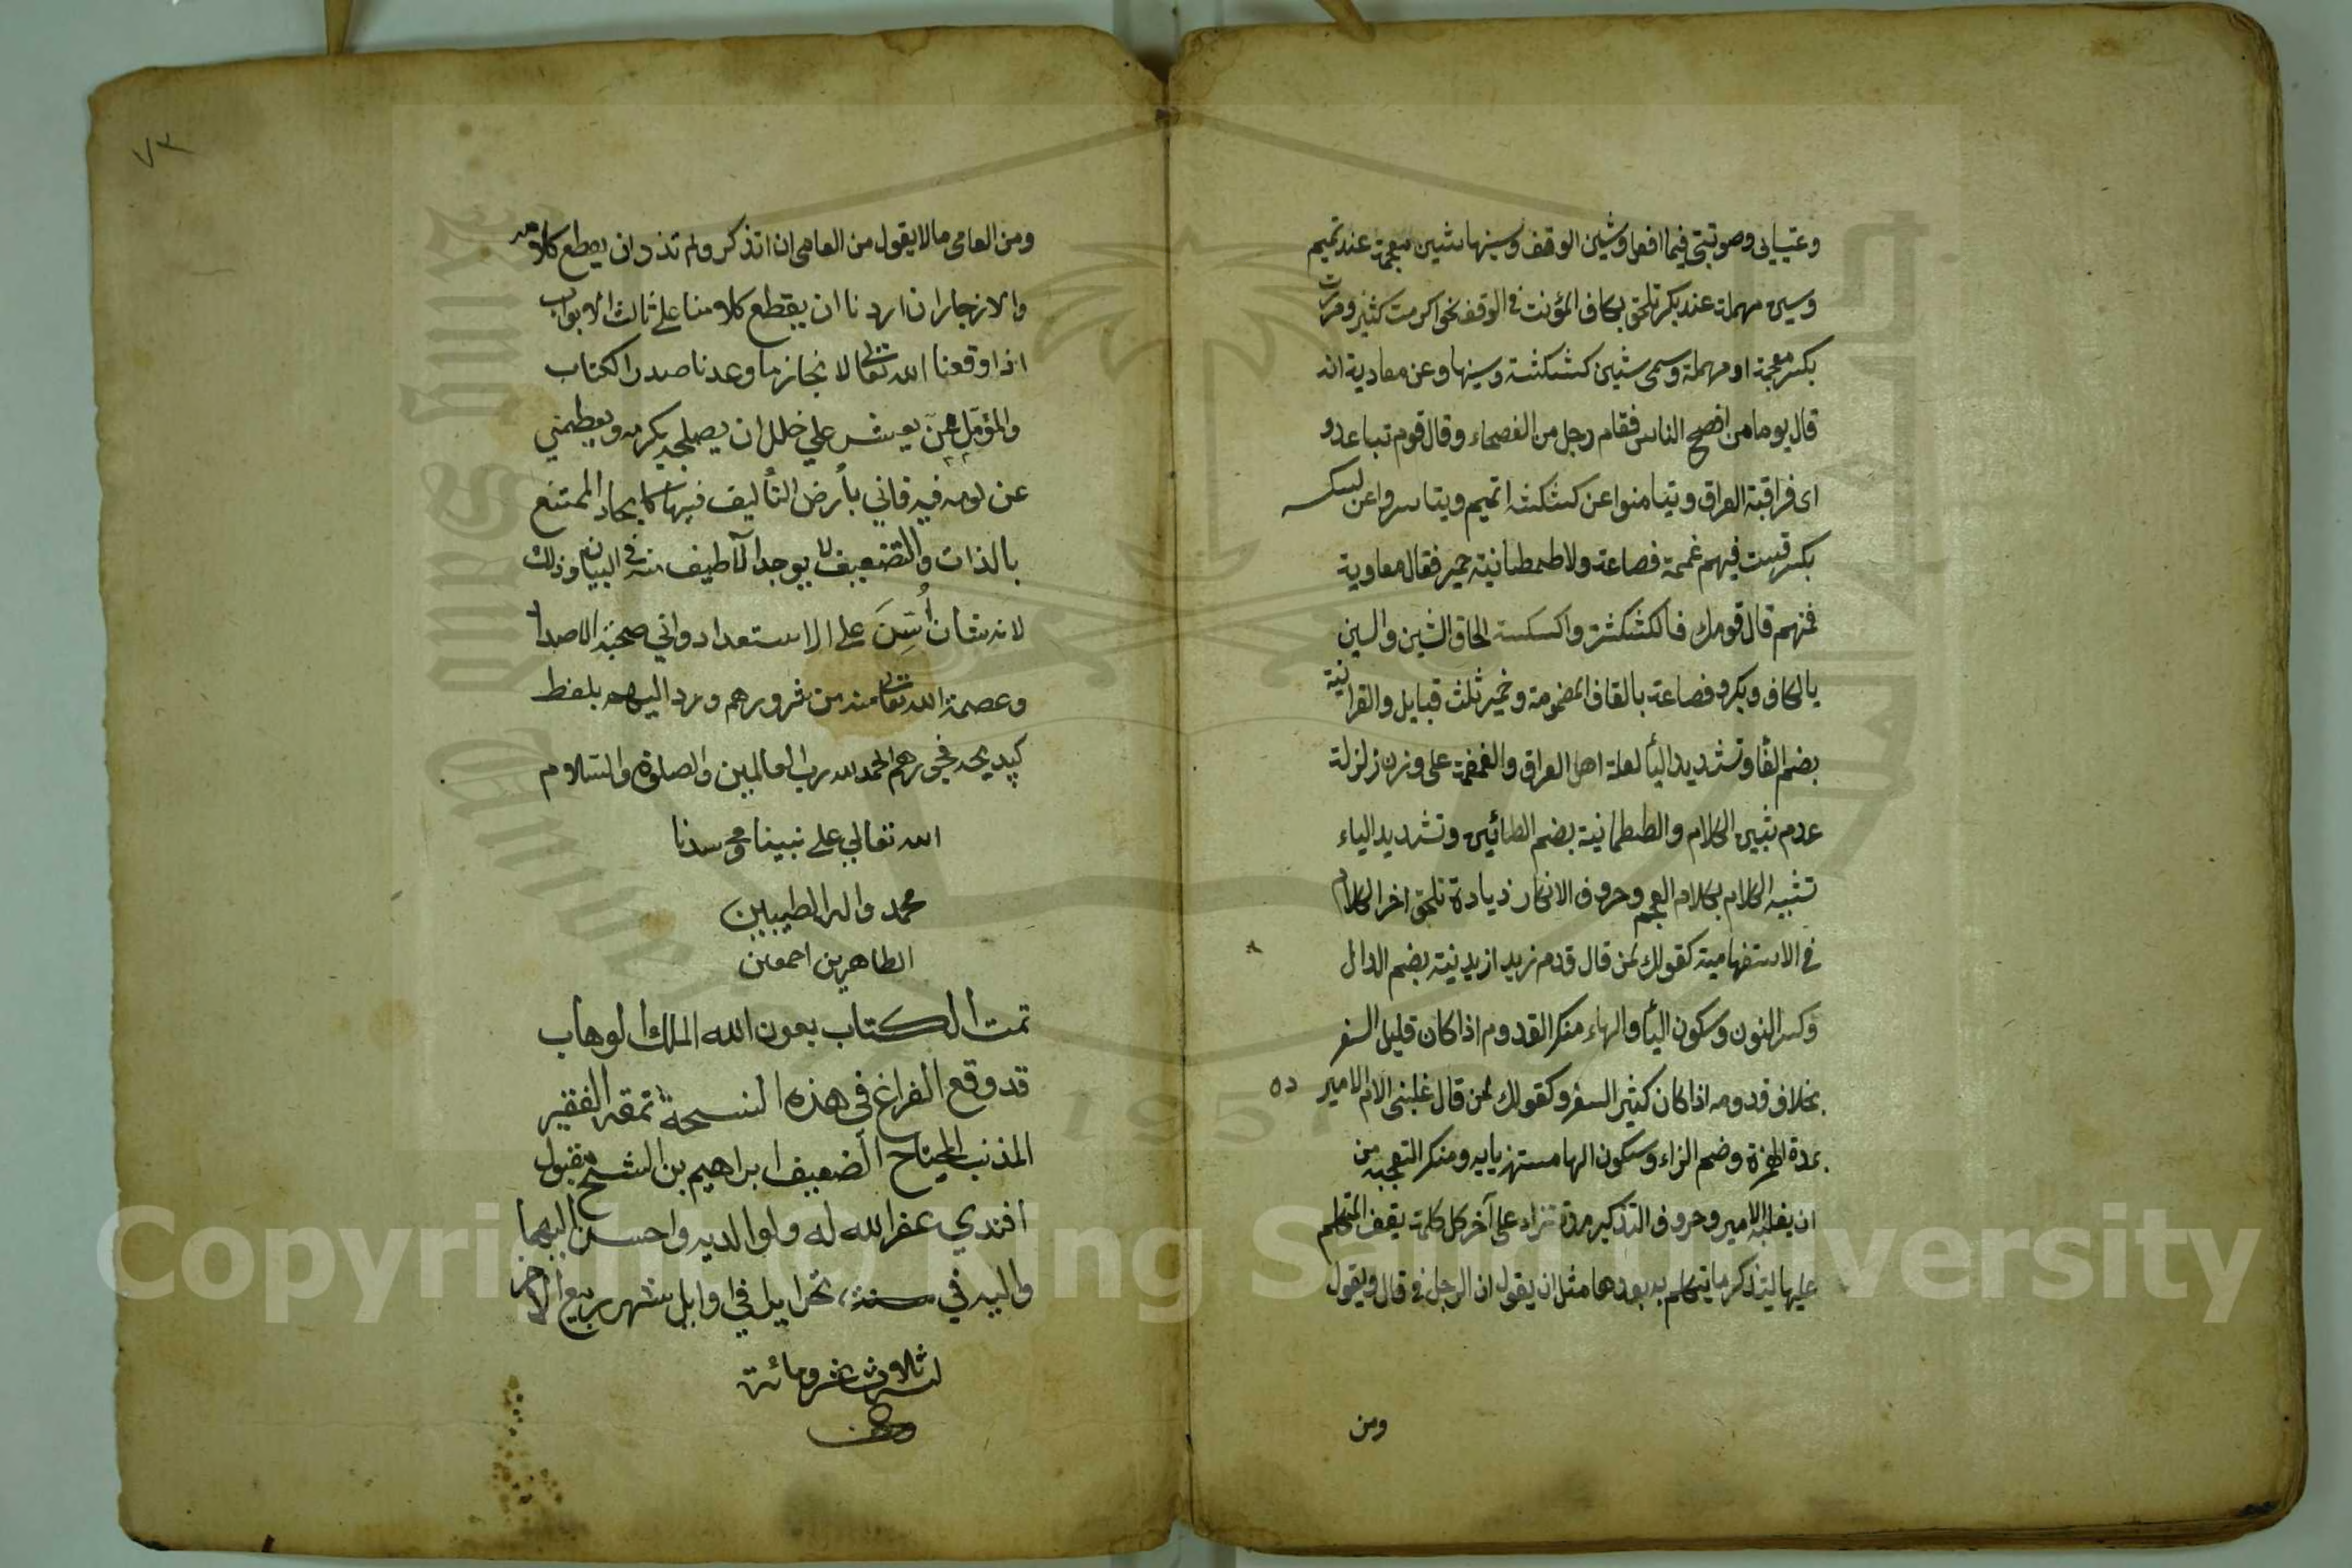 وعتبيابى وصوتبتى فيما افعل وشين الوقف وسينها شين معجمة عند تميم
وسين مهملة عند بكر تلحق بكاف المؤنث فى الوقف نحو اكرمت كش ومررت
بكس معجمة او مهملة وسمى شين كشكشة وسينها وعن معاوية انه
قال يوما من افصح الناس فقام رجل من الفصحاء وقال قوم تباعدو
اى فراقية العراق وتيامنوا عن كشكشة تميم وتياسروا عن كسكسه
بكر ليست فيهم غمغمة قضاعة ولا طمطمانية حمير فقال معاوية
فمنهم قال قومك فالكشكشة والكسكسة الحاق الشين والسين
بالكاف وبكر وقضاعة بالقاف المضمومة وحمير ثلث قبايل والفراتية
بضم الفا وتشديد اليا لغة اهل العراق والغمغمة على وزن زلزلة
عدم تبيين الكلام والطمطمانية بضم الطائين وتشديد الياء
تشبيه الكلام بكلام العجم وحروف الانكار زيادة تلحق اخر الكلام
فى الاستفهامية كقولك لمن قال قدم زيد ازيدنيه بضم الدال
وكسر النون وسكون اليأ والهاء منكر القدوم اذا كان قليل السفر
بخلاف قدومه اذا كان كثير السفر وكقولك لمن قال غلبنى الامير الاميروه
بمدة الهمزة وضم الراء وسكون الها مستهزيا به ومنكر التعجبه من
ان يغلبه الامير وحروف التذكير مدة تزاد على آخر كل كلمة يقف المتكلم
عليها ليتذكر ما يتكلم به بعدها مثل ان يقول ان الرجل فى قال ويقول
ومن
٧٣
ومن العامى مالا يقول من العامى ان اتذكر ولم تذر ان يقطع كلامه
والانزجار ان اردنا ان يقطع كلامنا على ثالث الابواب
اذا وقعنا الله تعالى لانجاز ما وعدنا صدر الكتاب
والمؤمل ممن يعش علي خلل ان يصلحه بكرمه ويعطيني
عن لومه فيه فاني بأرض التأليف فيها كايجاد الممتنع
بالذات والتضعيف لا يوجد الاطيف منه فى البيان وذلك
لانه شان اُسِّسَ على الاستعداد واني صحبة الاصدا
وعصمة الله تعالى منه من شرورهم ورد اليهم بلفظ
كيديحه فجورهم الحمد لله رب العالمين والصلوة والسلام
الله تعالي على نبينا ومحسدنا
محمد واله الطيبين
الطاهرين اجمعين
تمت الكتاب بعون الله الملك الوهاب
قد وقع الفراغ فى هذه النسخة نمقه الفقير
المذنب المحتاج الضعيف ابراهيم بن الشيخ مقبول
افندي غفر الله له ولوالديه واحسن اليهما
واليه في سنة، تحرايرا في اوايل شهر ربيع الاخر
لسنة ثلاث عشر ومائة